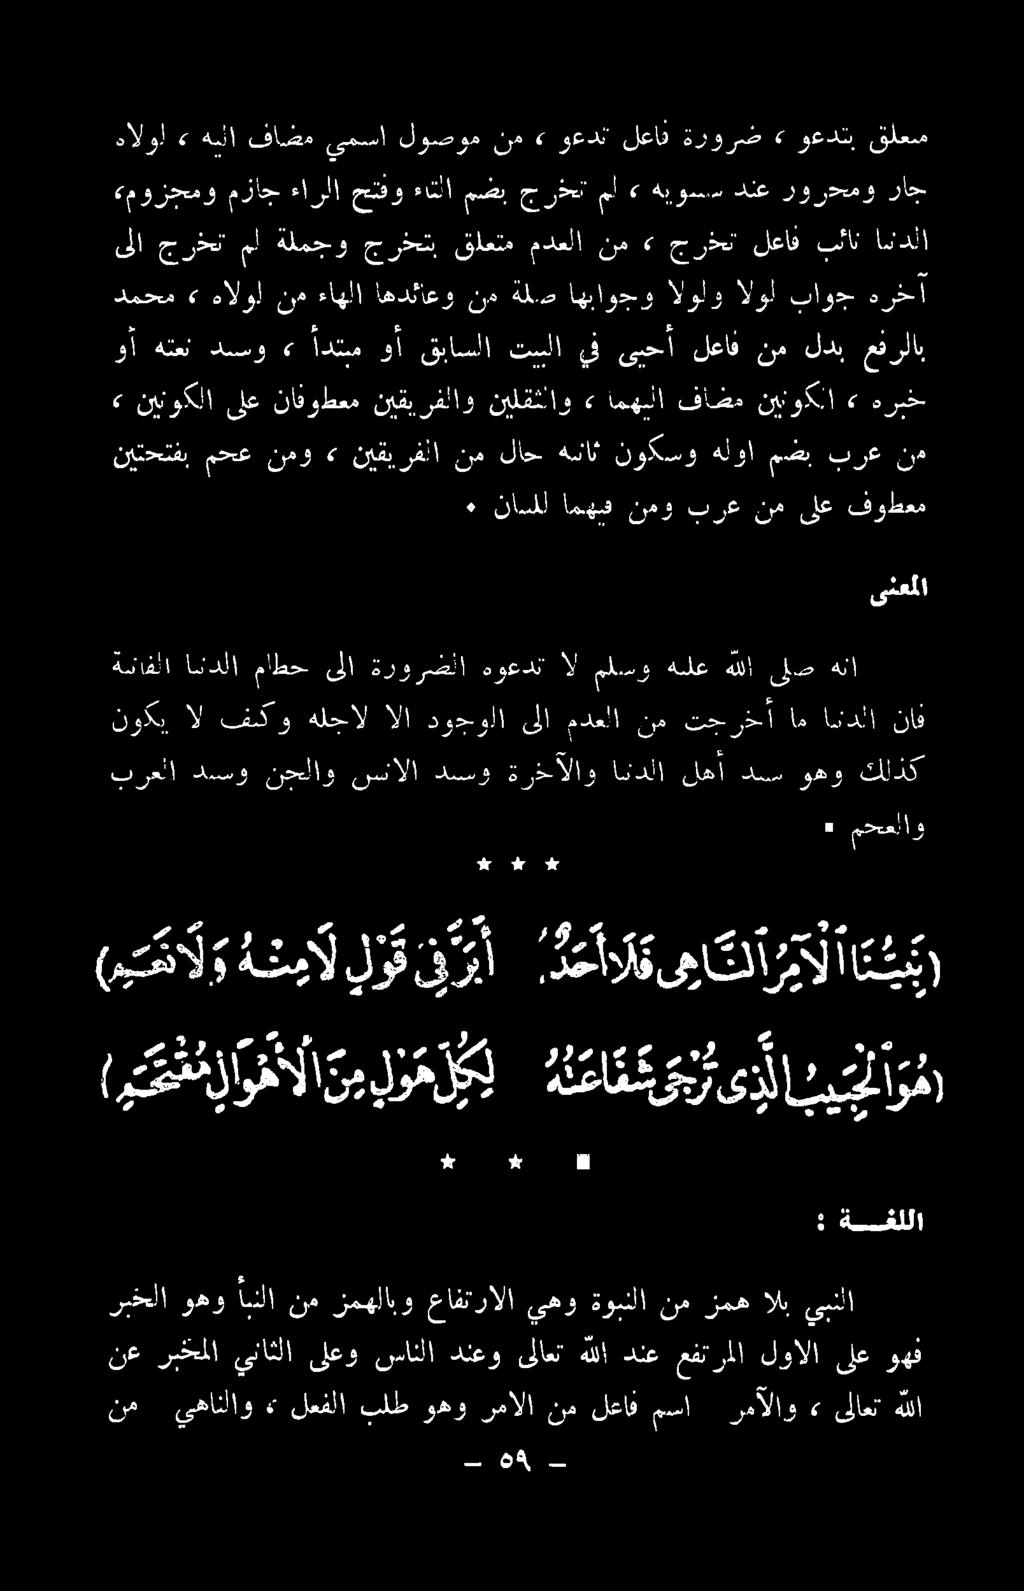 متعلق بتدعو ، ضرورة فاعل تدعو ، من موصول اسمي مضاف اليه ، لولاه
جار ومجرور عند سيبويه ، لم تخرج بضم التاء وفتح الراء جازم ومجزوم،
الدنيا نائب فاعل تخرج ، من العدم متعلق بتخرج وجملة لم تخرج الى
آخره جواب لولا ولولا وجوابها صلة من وعائدها الهاء من لولاه ، محمد
بالرفع بدل من فاعل أحيى في البيت السابق أو مبتدأ ، وسيد نعته أو
خبره ، الكونين مضاف اليهما ، والثقلين والفريقين معطوفان على الكونين ،
من عرب بضم اوله وسكون ثانيه حال من الفريقين ، ومن عجم بفتحتين
معطوف على من عرب ومن فيهما للبيان •
المعنى
انه صلى الله عليه وسلم لا تدعوه الضرورة الى حطام الدنيا الفانية
فان الدنيا ما أخرجت من العدم الى الوجود الا لاجله وكيف لا يكون
كذلك وهو سيد أهل الدنيا والآخرة وسيد الانس والجن وسيد العرب
والعجم ▪
★ ★ ★
(نَبِيُّنَا الْآمِرُ النَّاهِى فَلَا أَحَدٌ أَبَرَّ فِى قَوْلِ لَا مِنْهُ وَلَا نَعَمِ)
(هُوَ الْحَبِيبُ الَّذِى تُرْجَى شَفَاعَتُهُ لِكُلِّ هَوْلٍ مِنَ الْأَهْوَالِ مُقْتَحَمِ)
▪ ★ ★
اللغـــة :
النبي بلا همز من النبوة وهي الارتفاع وبالهمز من النبأ وهو الخبر
فهو على الاول المرتفع عند الله تعالى وعند الناس وعلى الثاني المخبر عن
الله تعالى ، والآمر اسم فاعل من الامر وهو طلب الفعل ، والناهي من
– ٥٩ –